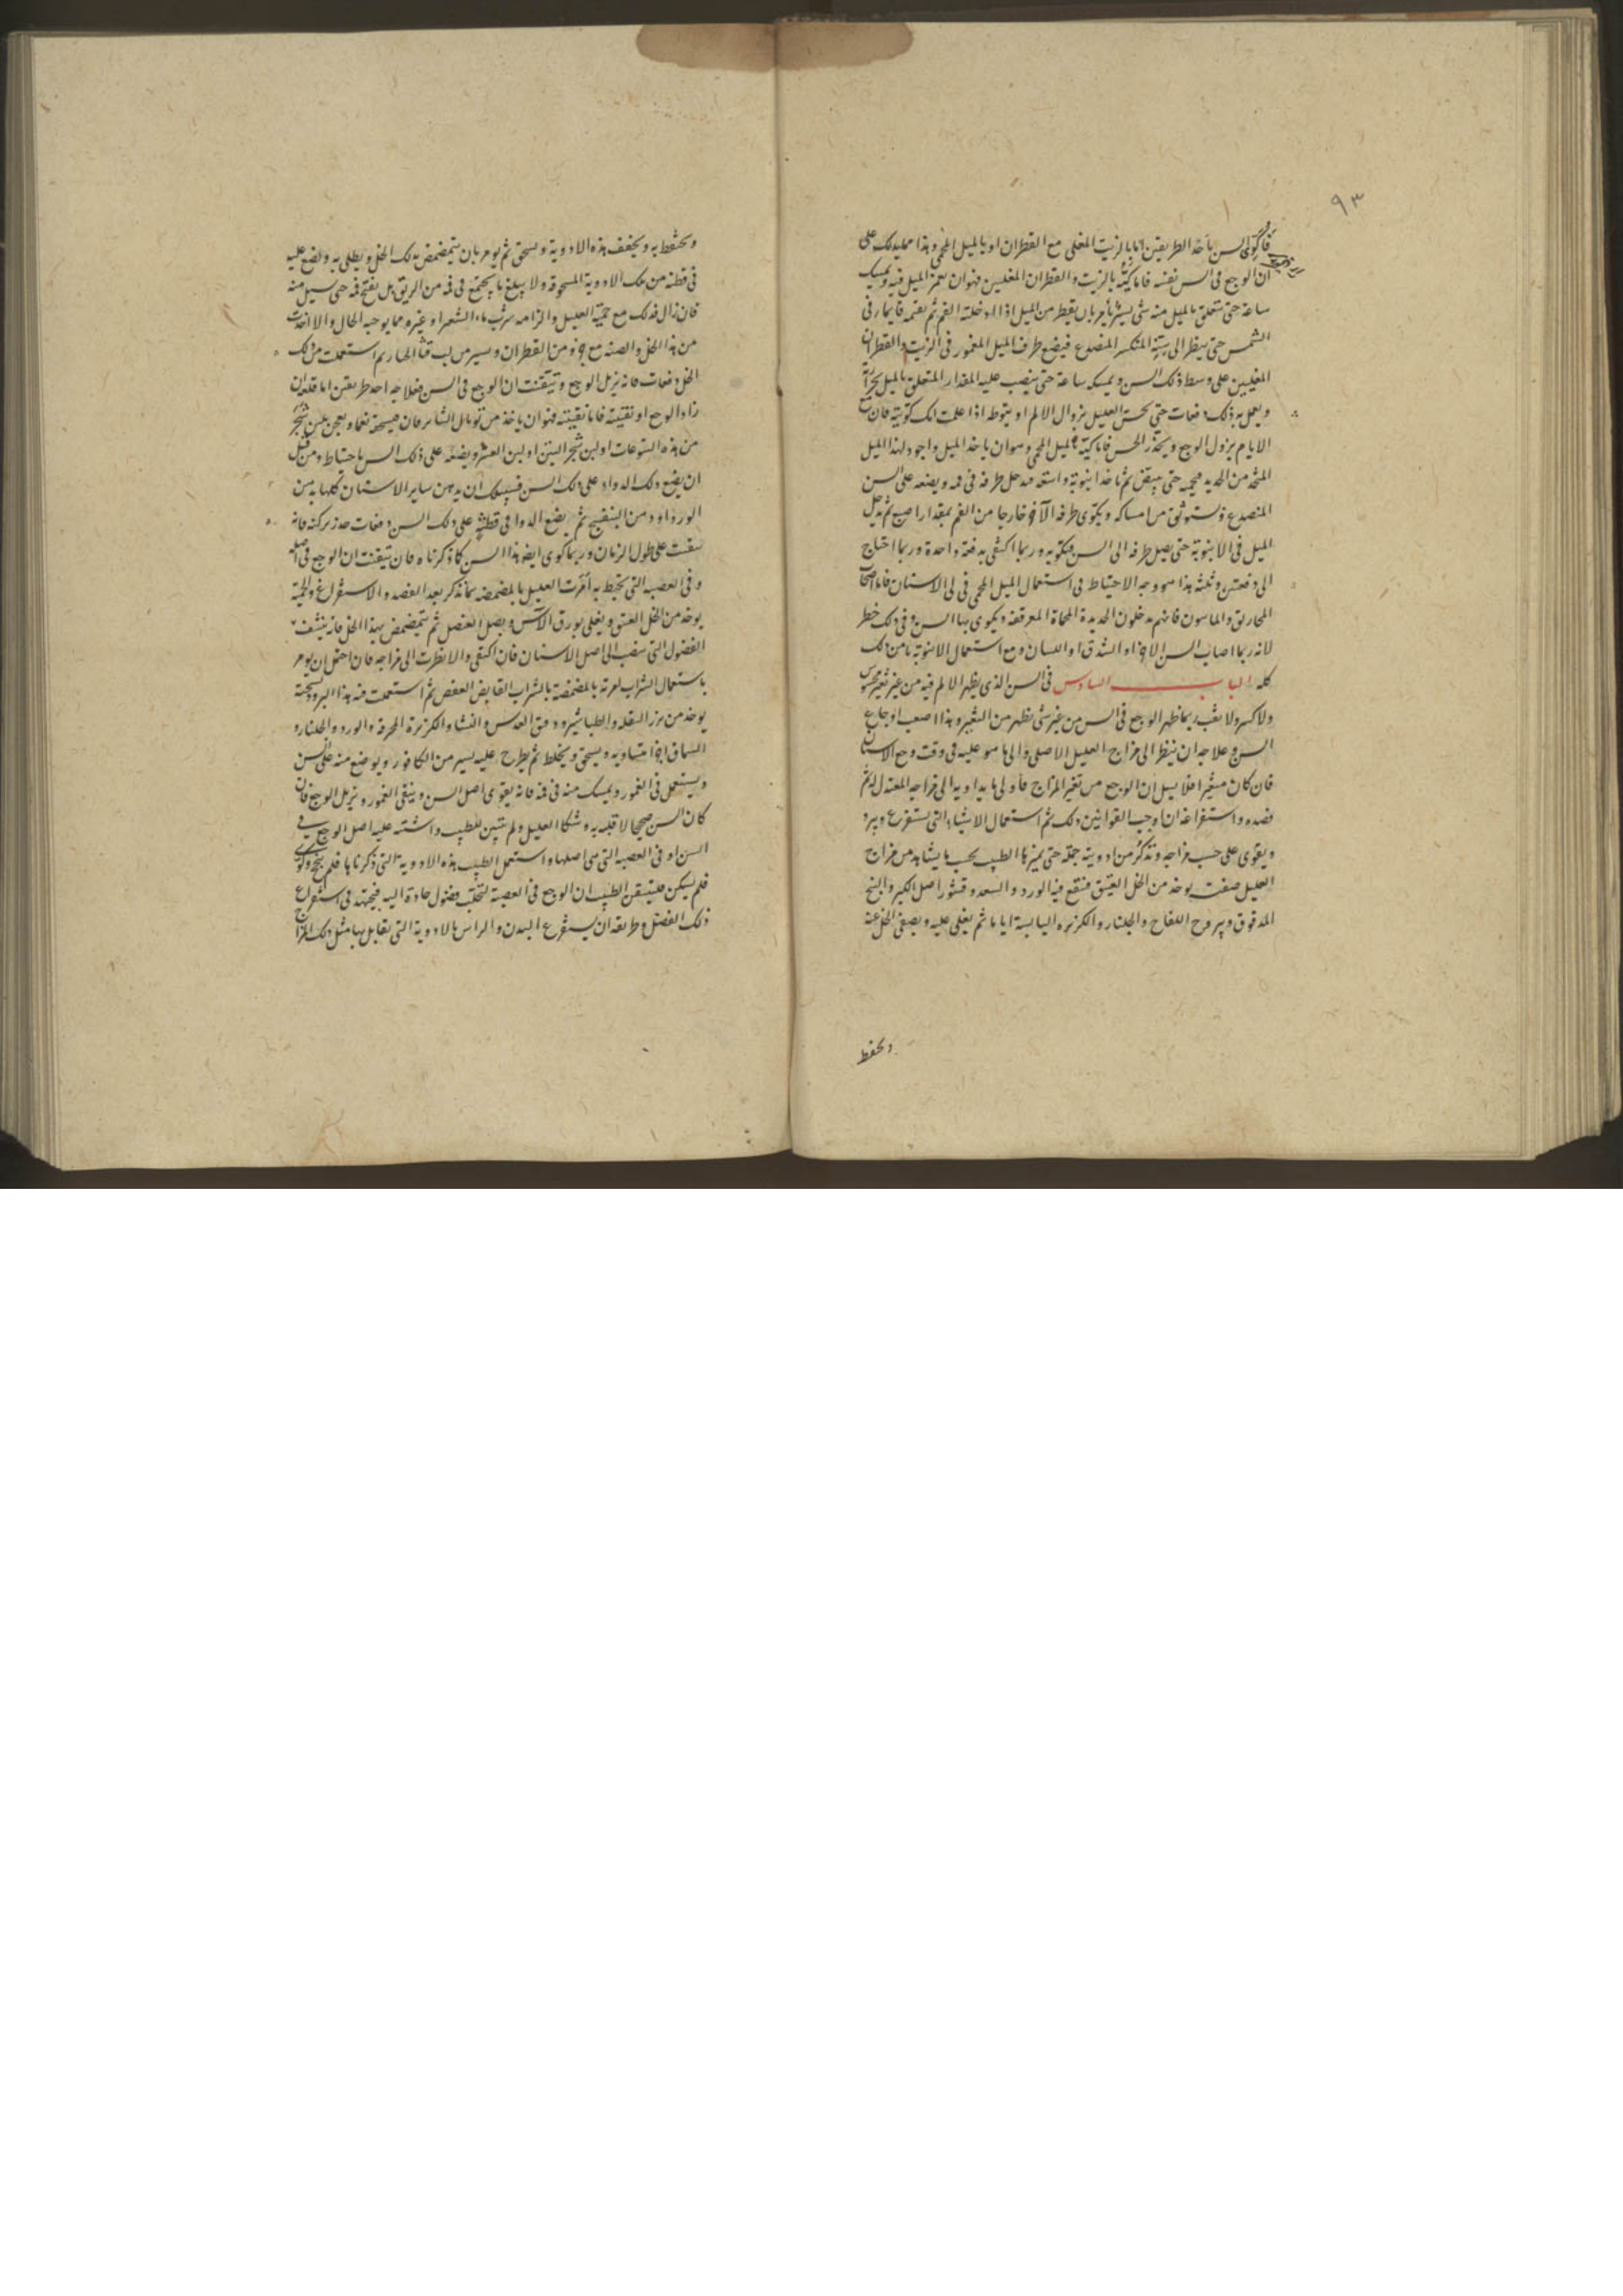 ٩٣
فاكوى السن باحد الطريقين اما بالزيت المغلى مع القطران او بالميل المحمى وهذا مما يدلك على
ان الوجع فى السن نفسه فاما كيه بالزيت والقطران المغليين فهو ان يغمر الميل فيه ويمسك
ساعة حتى يتعلق بالميل منه شى يسير بان يقطر من الميل اذا ادخلته الفم ثم يقيمه قايما فى
الشمس حتى ينظر الى سنه المنكسر المنصدع فيضع طرف الميل المغمور فى الزيت والقطران
المغليين على وسط ذلك السن ويمسكه ساعة حتى ينصب عليه المقدار المتعلق بالميل بحرارته
ويعمل به ذلك دفعات حتى يحس العليل بزوال الالم او
الايام يزول الوجع ويخدر الحس فاما كيه بالميل المحمى وهو ان ياخذ الميل واجود لهذا الميل
المتخذ من الحديد فيحميه حتى يبيض ثم ياخذ انبوبة واسعة فيدخل طرفه فى فمه ويضعه على السن
المنصدع ويستوثق من امساكه ويكون طرفه الاخر خارجا من الفم بمقدار اصبع ثم يدخل
الميل فى الانبوبة حتى يصل طرفه الى السن فيكويه وربما اكتفى بدفعة واحدة وربما احتاج
الى دفعتين وثلثة هذا هو وجه الاحتياط فى استعمال الميل المحمى فى كى الاسنان فاما اصحاب
المخاريق والماسون فانهم يدخلون الحديدة المحماة المعرقفة ويكوى بها السن وفى ذلك خطر
لانه ربما اصاب السن الاخر او الشدق او اللسان ومع استعمال الانبوبة يامن ذلك
كله الباب السادس فى السن الذى يظهر الالم فيه من غير تغير محسوس
ولا كسر ولا ثقب ربما ظهر الوجع فى السن من غير شى يظهر من التغير وهذا اصعب اوجاع
السن وعلاجه ان ينظر الى مزاج العليل الاصلى والى ما هو عليه فى وقت وجع الاسنان
فان كان متغيرا فلا سبيل ان الوجع من تغير المزاج فاولى ما يداويه الى مزاجه المعتدل له ثم
فصده واستفراغه ان اوجب القوانين ذلك ثم استعمال الاشياء التى تستفرغ ويبرد
ويقوى على حسب مزاجه ونذكر من ادويته جملة حتى يميزها الطبيب بحسب ما يشاهد من مزاج
العليل صفت يوخذ من الخل العتيق فينقع فيه الورد والسعد وقشور اصل الكبر والبنج
المدقوق ويبروح اللفاح والجلنار والكزبره اليابسة اياما ثم يغلى عليه ويصفى الخل عنه
ويحفظ
ويحتفظ به ويجفف هذه الادوية ويسحق ثم يومر بان يتمضمض بذلك الخل ويطلى به ويضع عليه
فى قطنه من تلك الادوية المسحوقة ولا يبلع ما يجتمع فى فمه من الريق بل يفتح فمه حتى يسيل منه
فان زال فذلك مع حمية العليل والزامه شرب ماء الشعير او غيره مما يوجبه الحال والا اخذت
من هذا الخل والصقه مع جزو من القطران ويسير من لب قثا الحمار ثم استعملت من ذلك
الخل دفعات فانه يزيل الوجع وتيقنت ان الوجع فى السن فعلاجه احد طريقين اما قلعه ان
زاد الوجع او تفتيته فاما تفتيته فهو ان ياخذ من توبال الشابرقان فيسحقه نعما ويعجن بلبن شجر
من هذه اليتوعات او لبن شجر التين او لبن العشر ويضعه على ذلك السن باحتياط ومن قبل
ان يضع ذلك الدواء على ذلك السن فسبيلك ان يدهن ساير الاسنان كلها بدهن
الورد او دهن البنفسج ثم يضع الدوا فى قطنة على ذلك السن دفعات
على طول الزمان وربما كوى ايضا هذا السن كما ذكرناه فان تيقنت ان الوجع فى اصله
وفى العصب التى تحيط به امرت العليل بالمضمضه بما نذكر بعد الفصد والاستفراغ والحمية
يوخذ من الخل العتيق ويغلى بورق الاس وبصل العنصل ثم يتمضمض بهذا الخل فانه ينشف
الفضول التى تنصب الى اصل الاسنان فان اكتفى والا نظرت الى مزاجه فان احتمل ان يومر
باستعمال الشراب امرته بالمضمضة بالشراب القابض العفص ثم استعملت فيه هذا البرود
يوخذ من بزر البقله والطباشير ودقيق العدس والنشا والكزبرة المحرقة والورد والجلنار و
السماق اجزا متساويه ويسحق ويخلط ثم يطرح عليه يسير من الكافور ويوضع منه على السن
ويستعمل فى الغمور ويمسك منه فى فمه فانه يقوى اصل السن وينقى الغمور ويزيل الوجع فان
كان السن صحيحا لا قلبه به وشكا العليل ولم يتبين للطبيب واشتبه عليه اصل الوجع فى
السن او فى العصبه التى فى اصلها واستعمل الطبيب هذه الادوية التى ذكرناها فلم ينجح وكوى
فلم يسكن فليتيقن الطبيب ان الوجع فى العصبة لتحلب فضول حادة اليه فيجتهد فى استفراغ
ذلك الفضل وطريقه ان يستفرغ البدن والراس بالادوية التى تقابل بها مثل ذلك المزاج